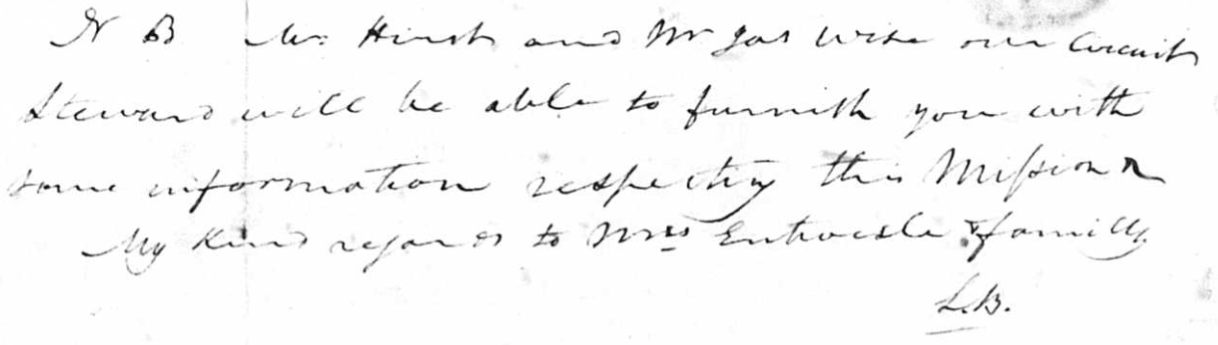 N B Mr. Hirst and Mr Jas Wise our Circuit
Steward will be able to furnish you with
some information respecting this Mission
My kind regards to Mrs Entwisle & family.
L.B.